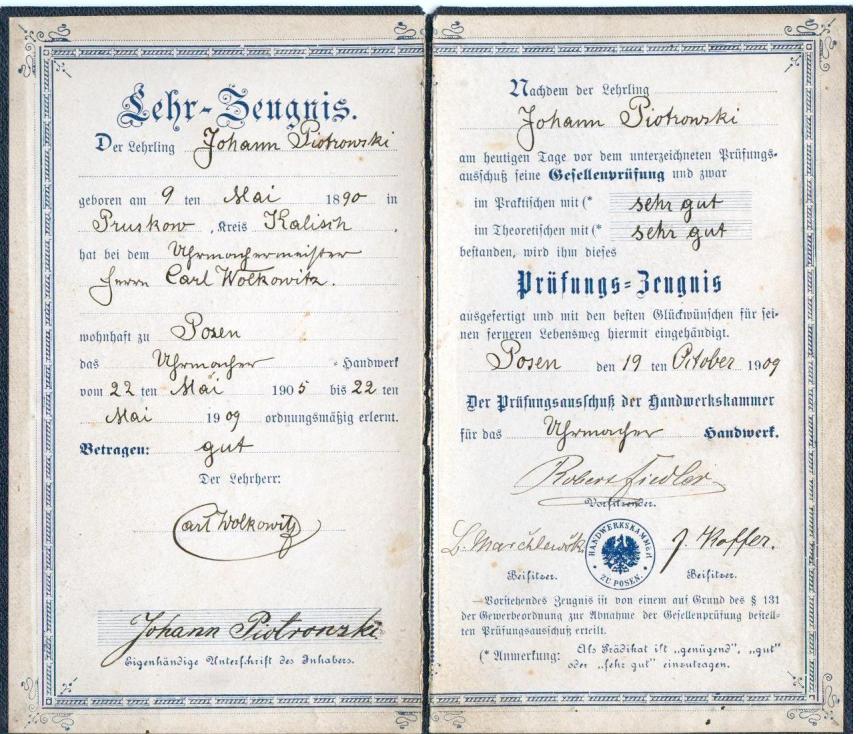 Lehr-Zeugnis.
Der Lehrling Johann Piotrowski
geboren am 9 ten Mai 1890 in
Pruskow, Kreis Kalisch,
hat bei dem Uhrmachermeister
Herrn Carl Wolkowitz.
wohnhaft zu Posen
das Uhrmacher-Handwerk
vom 22 ten Mai 1905 bis 22 ten
Mai 1909 ordnungsmäßig erlernt.
Betragen: gut
Der Lehrherr:
Carl Wolkowitz
Johann Piotrowski
Eigenhändige Unterschrift des Inhabers.
Nachdem der Lehrling
Johann Piotrowski
am heutigen Tage vor dem unterzeichneten Prüfungs-
ausschuß seine Gesellenprüfung und zwar
im Praktischen mit (* sehr gut
im Theoretischen mit (* sehr gut
bestanden, wird ihm dieses
Prüfungs-Zeugnis
ausgefertigt und mit den besten Glückwünschen für sei-
nen ferneren Lebensweg hiermit eingehändigt.
Posen den 19 ten October 1909
Der Prüfungsausschuß der Handwerkskammer
für das Uhrmacher Handwerk.
Robert Fiedler
Vorsitzender.
HANDWERKSKAMMER
ZU POSEN.
J. Hoffer.
Beisitzer. Beisitzer.
Vorstehendes Zeugnis ist von einem auf Grund des § 131
der Gewerbeordnung zur Abnahme der Gesellenprüfung bestell-
ten Prüfungsausschuß erteilt.
(* Anmerkung: Als Prädikat ist „genügend", „gut"
oder „sehr gut" einzutragen.